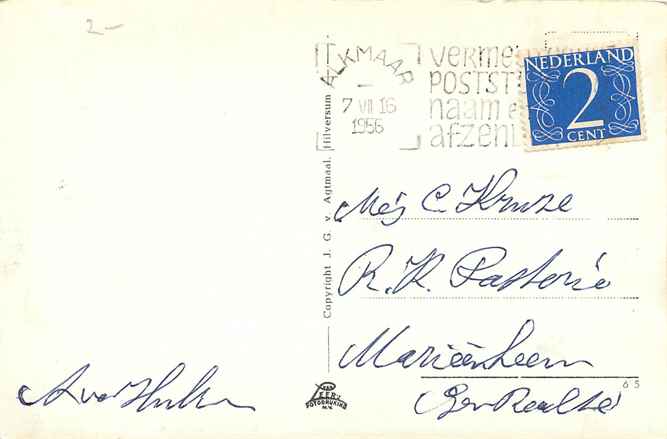 2-
ALKMAAR
7 VII 16
1956
verme
POSTST
naam e
afzen
NEDERLAND
2
CENT
Copyright J. G. v. Agtmaal. Hilversum
Mej C. Kruse
R. K. Pastorie
Mariënheem
Ber Raalte
65
FOTODRUKKE
N.V.
A v